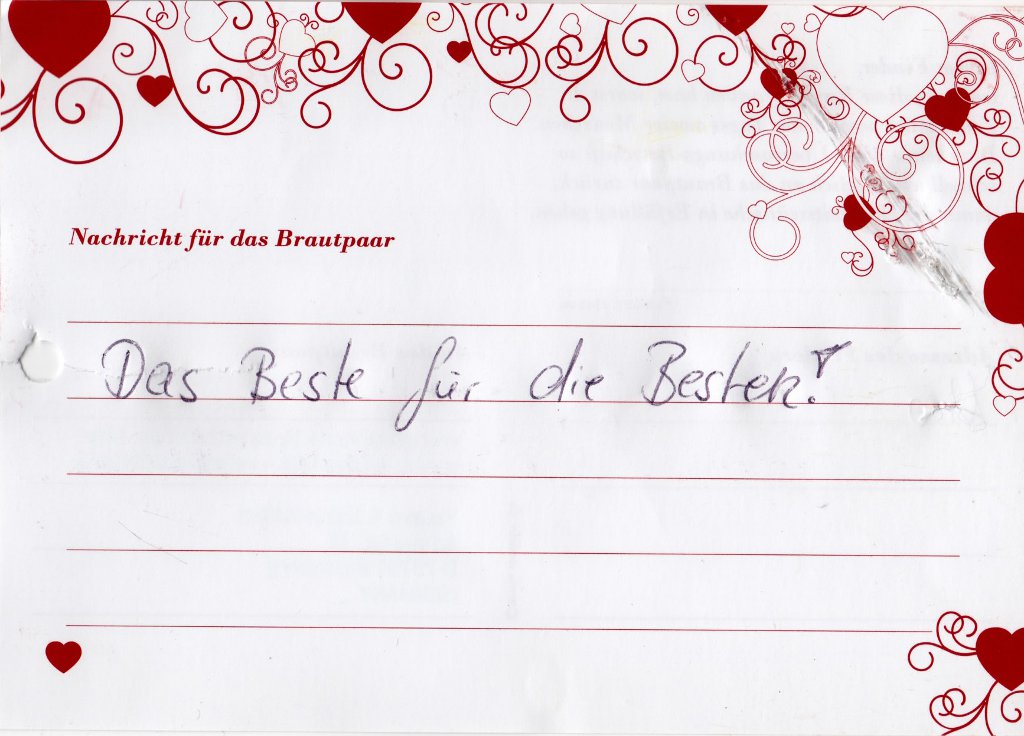 Nachricht für das Brautpaar
Das Beste für die Besten!